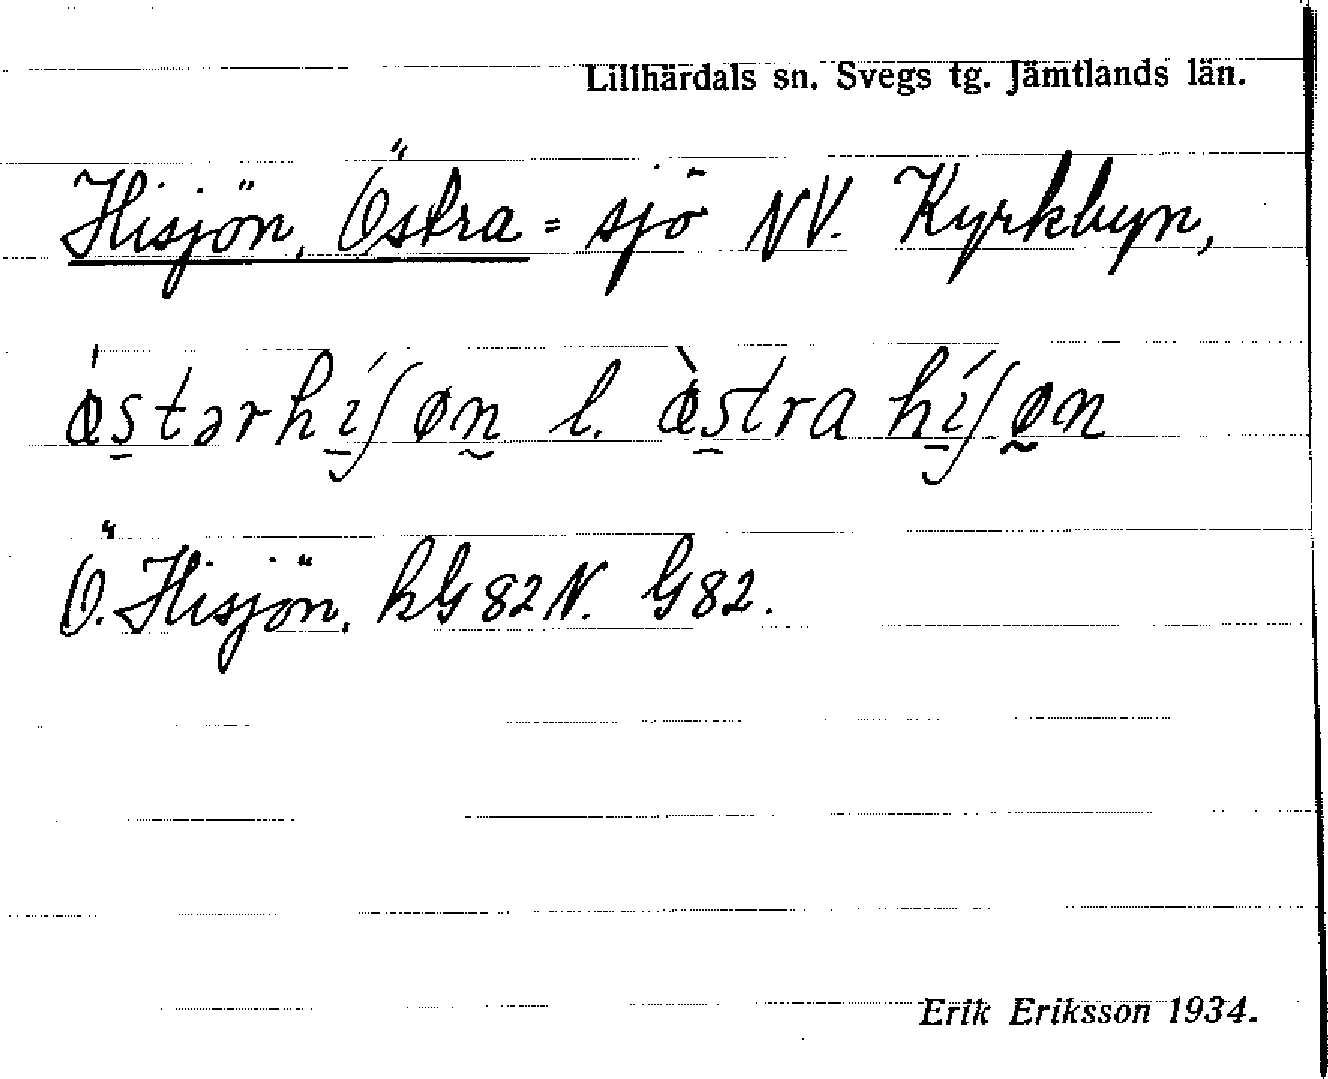 Lillhärdals sn. Svegs tg. Jämtlands län.
Hisjön, Östra = sjö NV. Kyrkbyn,
ǿstərhíʃøn l. œ̀stra híʃøn
Ö. Hisjön, kG 82 N. G 82.
Erik Eriksson 1934.